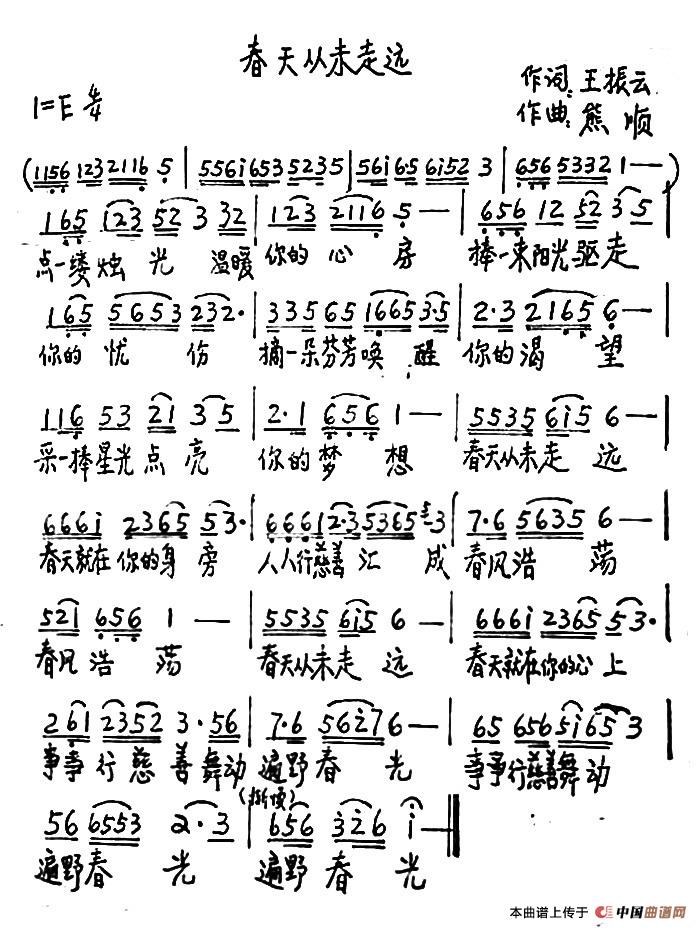 春天从未走远
作词:王振云
1=E 4/4
作曲:熊顺
(1156 123 2116 5 | 556i 653 5235 | 56i 6·5 6i52 3 | 656 5332 1 — — )
165 123 52 3 32 | 123 2116 5 — | 656 12 52 3 5
点一缕烛光 温暖 你的心房 捧一束阳光驱走
165 5653 232· | 335 65 1665 3·5 | 2·3 2165 6 —
你的忧伤 摘一朵芬芳唤醒 你的渴望
116 53 21 3 5 | 2·1 656 1 — | 5535 6i5 6 —
采一捧星光点亮 你的梦想 春天从未走远
666i 2365 53· | 6661 2·3 5365 3 | 7·6 5635 6 —
春天就在你的身旁 人人行慈善汇成 春风浩荡
521 656 1 — | 5535 6i5 6 — | 666i 2365 53·
春风浩荡 春天从未走远 春天就在你的心上
261 2352 3·56 | 7·6 56i7 6 — | 65 656 5i65 3
事事行慈善舞动 遍野春光 事事行慈善舞动
(渐慢)
56 6553 2·3 | 656 326 i —
遍野春光 遍野春光
本曲谱上传于 中国曲谱网